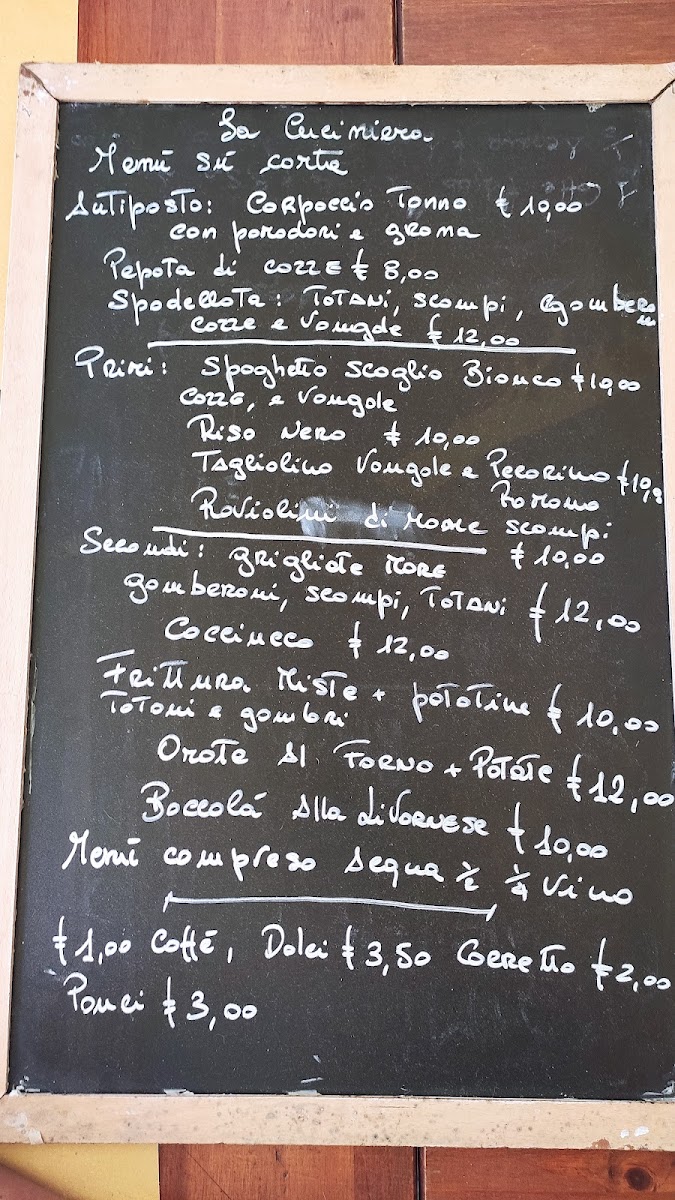 La Cuciniera
Menù sù carta
Antipasto: Carpaccio Tonno € 10,00
con pomodori e grana
Pepata di cozze € 8,00
Spadellata: Totani, scampi, gamberoni
cozze e vongole € 12,00
Primi: Spaghetto scoglio Bianco € 10,00
cozze, e vongole
Riso Nero € 10,00
Tagliolino Vongole e Pecorino € 10,
Romano
Raviolini di Mare scampi
€ 10,00
Secondi: grigliata mare
gamberoni, scampi, Totani € 12,00
Cacciucco € 12,00
Frittura Mista + patatine € 10,00
Totani e gamberi
Orata Al Forno + Patate € 12,00
Baccalà Alla Livornese € 10,00
Menù compreso Acqua ½ ¼ Vino
€ 1,00 Caffè, Dolci € 3,50 Correto € 2,00
Ponci € 3,00